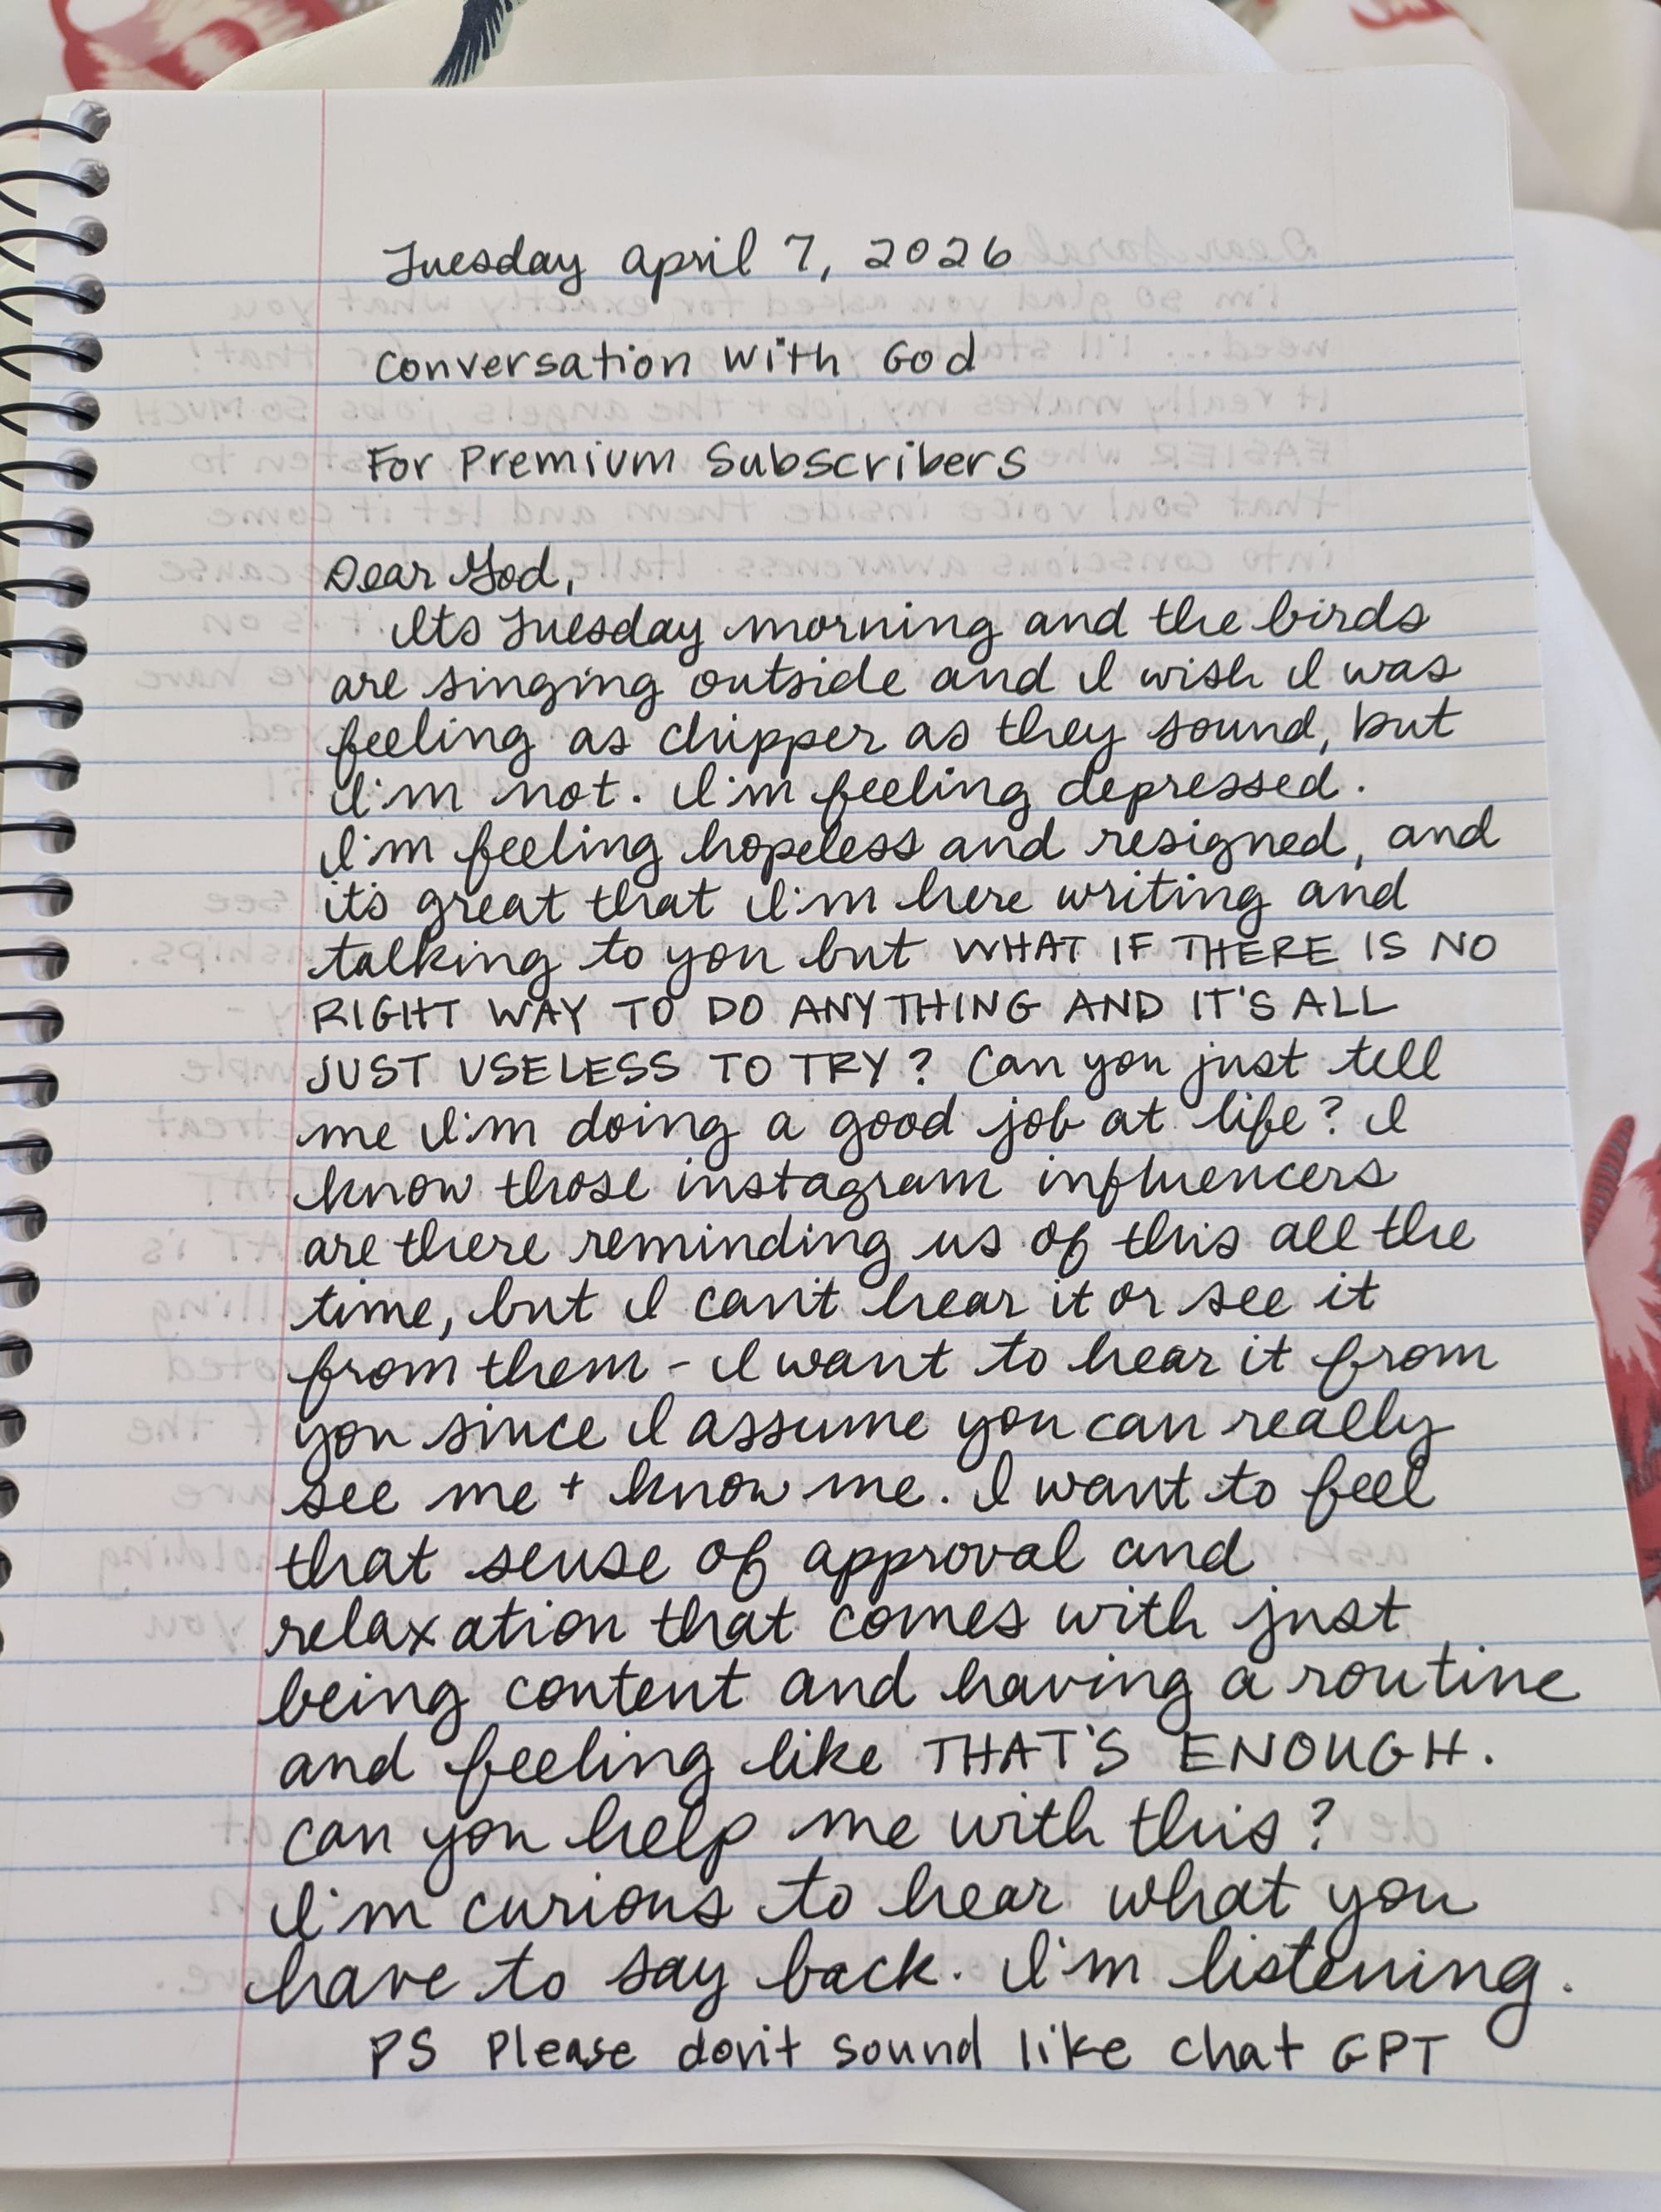 Tuesday April 7, 2026
Conversation With God
For Premium Subscribers
Dear God,
Its Tuesday morning and the birds
are singing outside and I wish I was
feeling as chipper as they sound, but
I'm not. I'm feeling depressed.
I'm feeling hopeless and resigned, and
it's great that I'm here writing and
talking to you but WHAT IF THERE IS NO
RIGHT WAY TO DO ANYTHING AND IT'S ALL
JUST USELESS TO TRY? Can you just tell
me I'm doing a good job at life? I
know those instagram influencers
are there reminding us of this all the
time, but I can't hear it or see it
from them - I want to hear it from
you since I assume you can really
see me + know me. I want to feel
that sense of approval and
relaxation that comes with just
being content and having a routine
and feeling like THAT'S ENOUGH.
Can you help me with this?
I'm curious to hear what you
have to say back. I'm listening.
PS Please don't sound like chat GPT